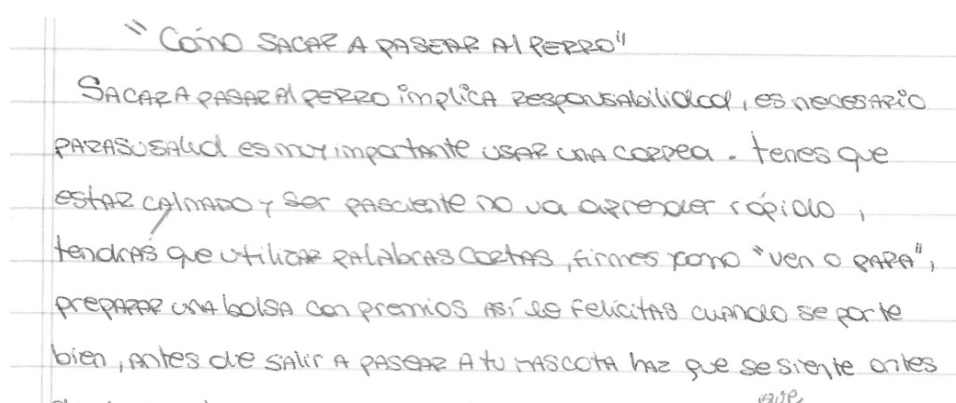 "Cómo SACAR A PASEAR Al PERRO"
SACAR A PASAR Al PERRO implicA Responsabilidad, es necesario
PARA SU SAlud es muy importante USAR UNA CORREA. tenes que
estAR CAlMADO y ser pasciente no va aprender rápido,
tendrás que utilizar PALAbras CORTAS, firmes como "ven o PARA",
prepARAR UNA bolsA con premios Así le felicitAs cuando se porte
bien, Antes de SAlir A PASEAR A tu MASCOTA haz que se siente antes